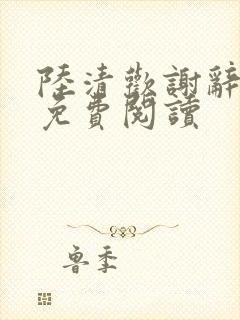 陸清歡謝辭
免費閱讀
魯季